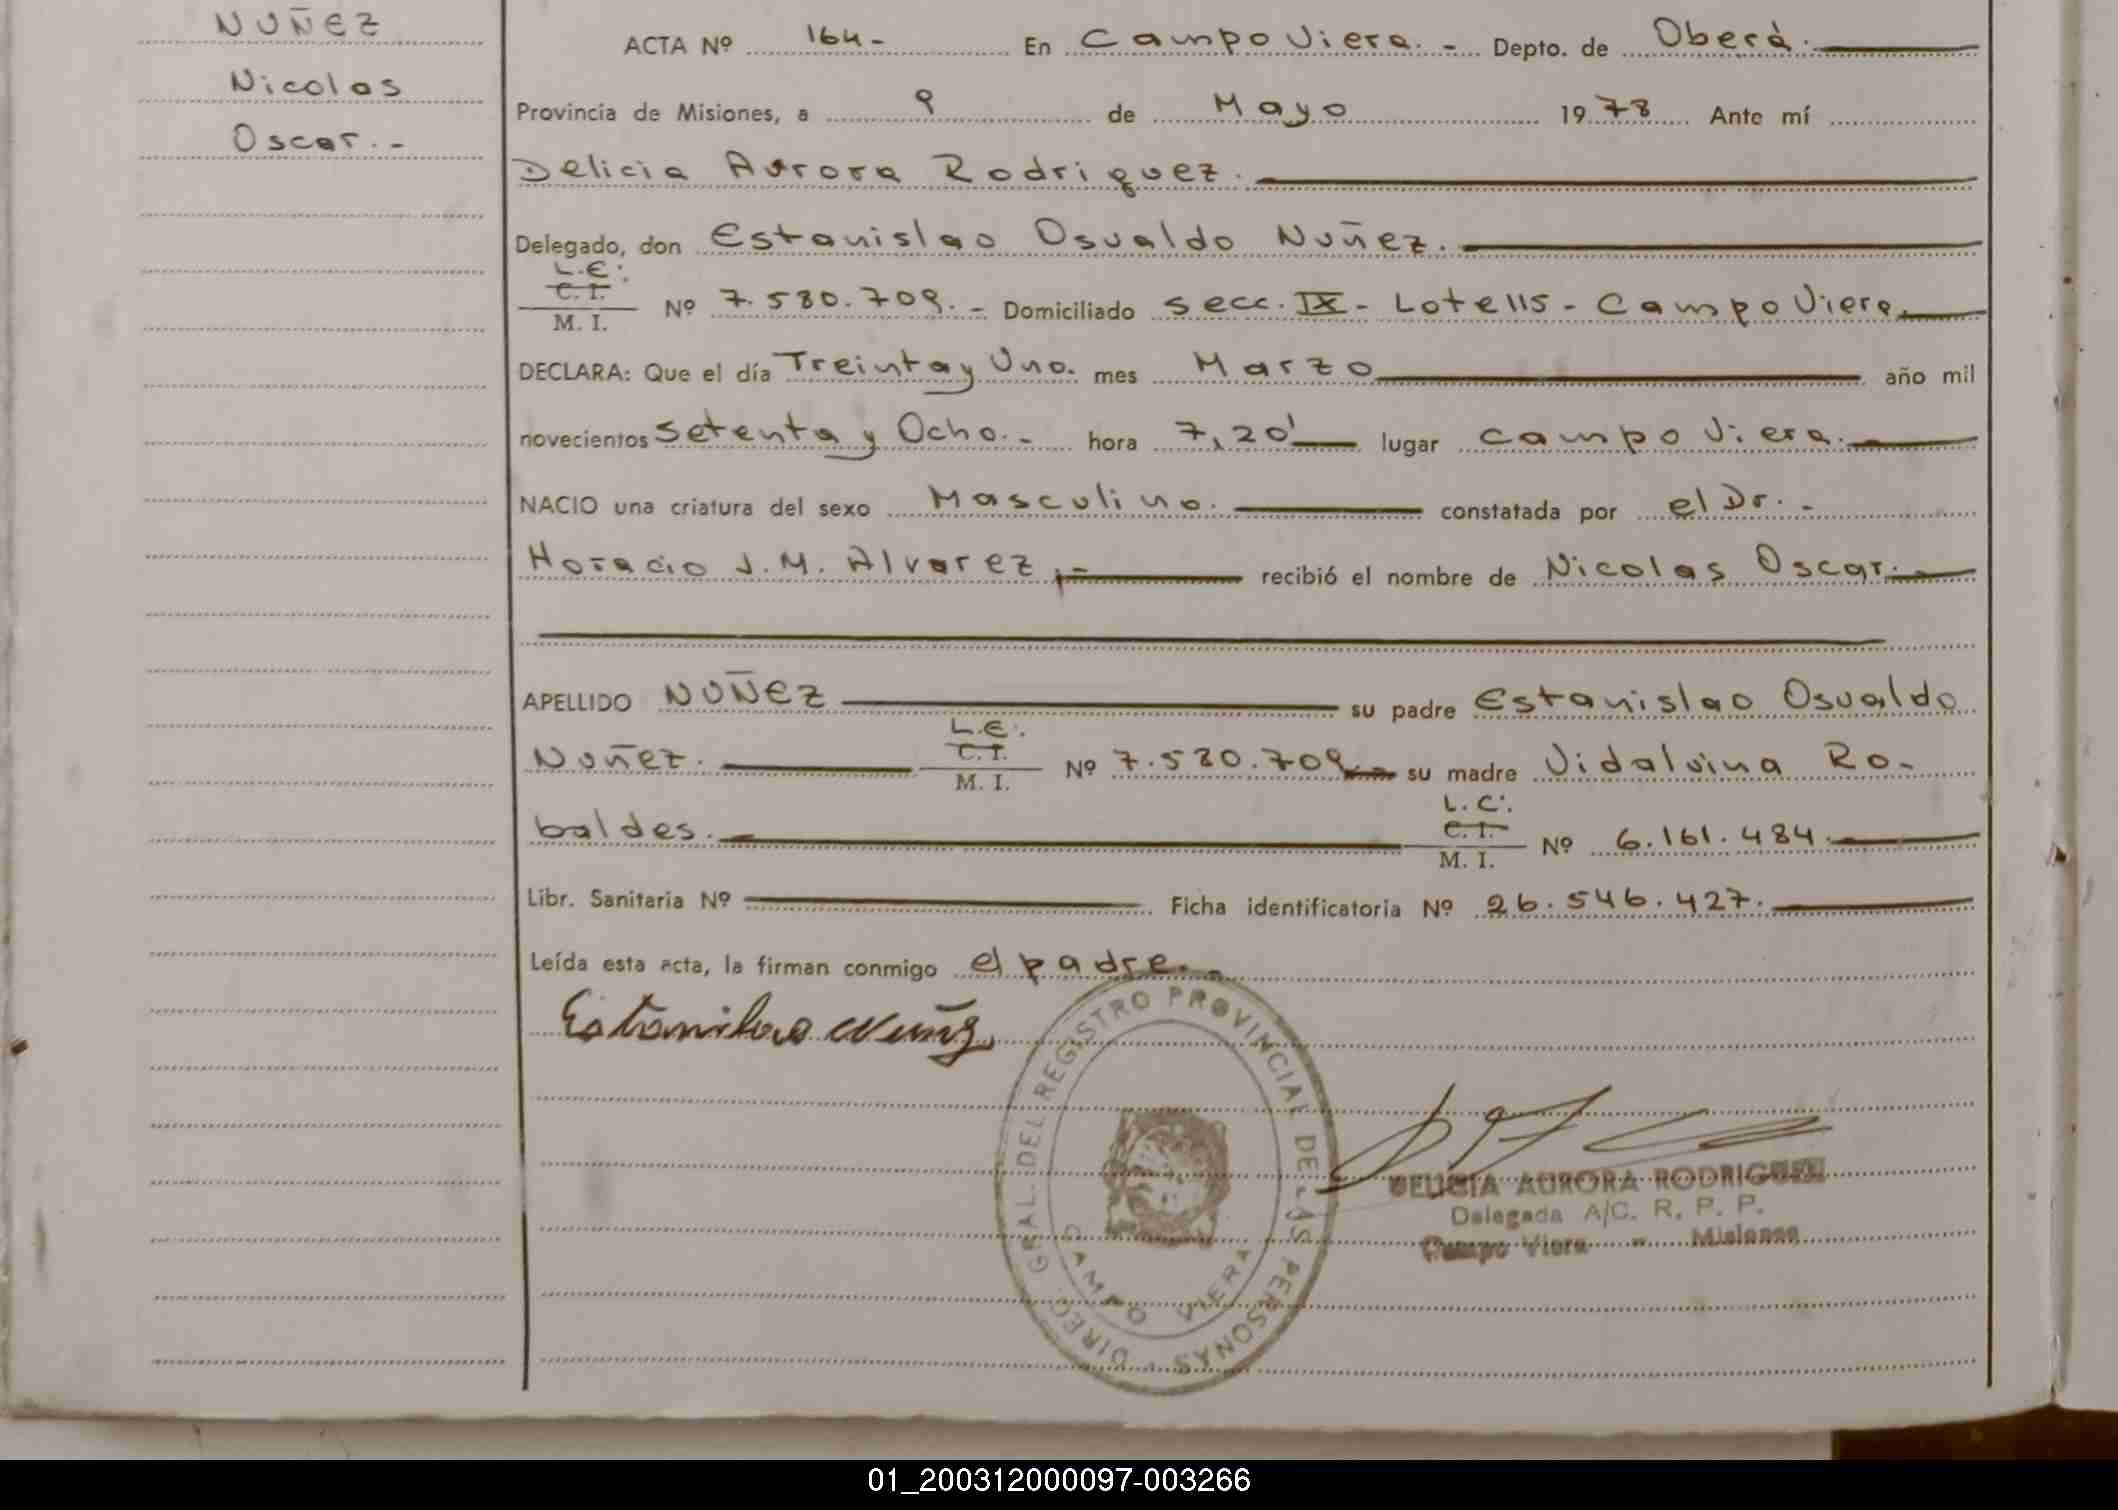 NUÑEZ
Nicolas
Oscar.-
ACTA Nº 164- En Campo Viera.- Depto. de Oberá.
Provincia de Misiones, a 9 de Mayo 1978 Ante mí
Delicia Aurora Rodriguez.
Delegado, don Estanislao Osvaldo Nuñez.
L.E:
C. I.
M. I. Nº 7.580.709.- Domiciliado secc. IX - Lote 115 - Campo Viera,
DECLARA: Que el día Treinta y Uno. mes Marzo año mil
novecientos setenta y Ocho.- hora 7,20' lugar Campo Viera.
NACIO una criatura del sexo Masculino. constatada por el Dr.-
Horacio J. M. Alvarez,- recibió el nombre de Nicolas Oscar.-
APELLIDO NUÑEZ su padre Estanislao Osvaldo
Nuñez. L.E:
C. I.
M. I. Nº 7.580.709.- su madre Vidalvina Ro-
baldes. L.C:
C. I.
M. I. Nº 6.161.484.
Libr. Sanitaria Nº Ficha identificatoria Nº 26.546.427.
Leída esta acta, la firman conmigo el padre.-
Estanislao Nuñez
DIREC. GRAL. DEL REGISTRO PROVINCIAL DE LAS PERSONAS
CAMPO VIERA
DELICIA AURORA RODRIGUEZ
Delegada A/C. R. P. P.
Campo Viera - Misiones
01_200312000097-003266